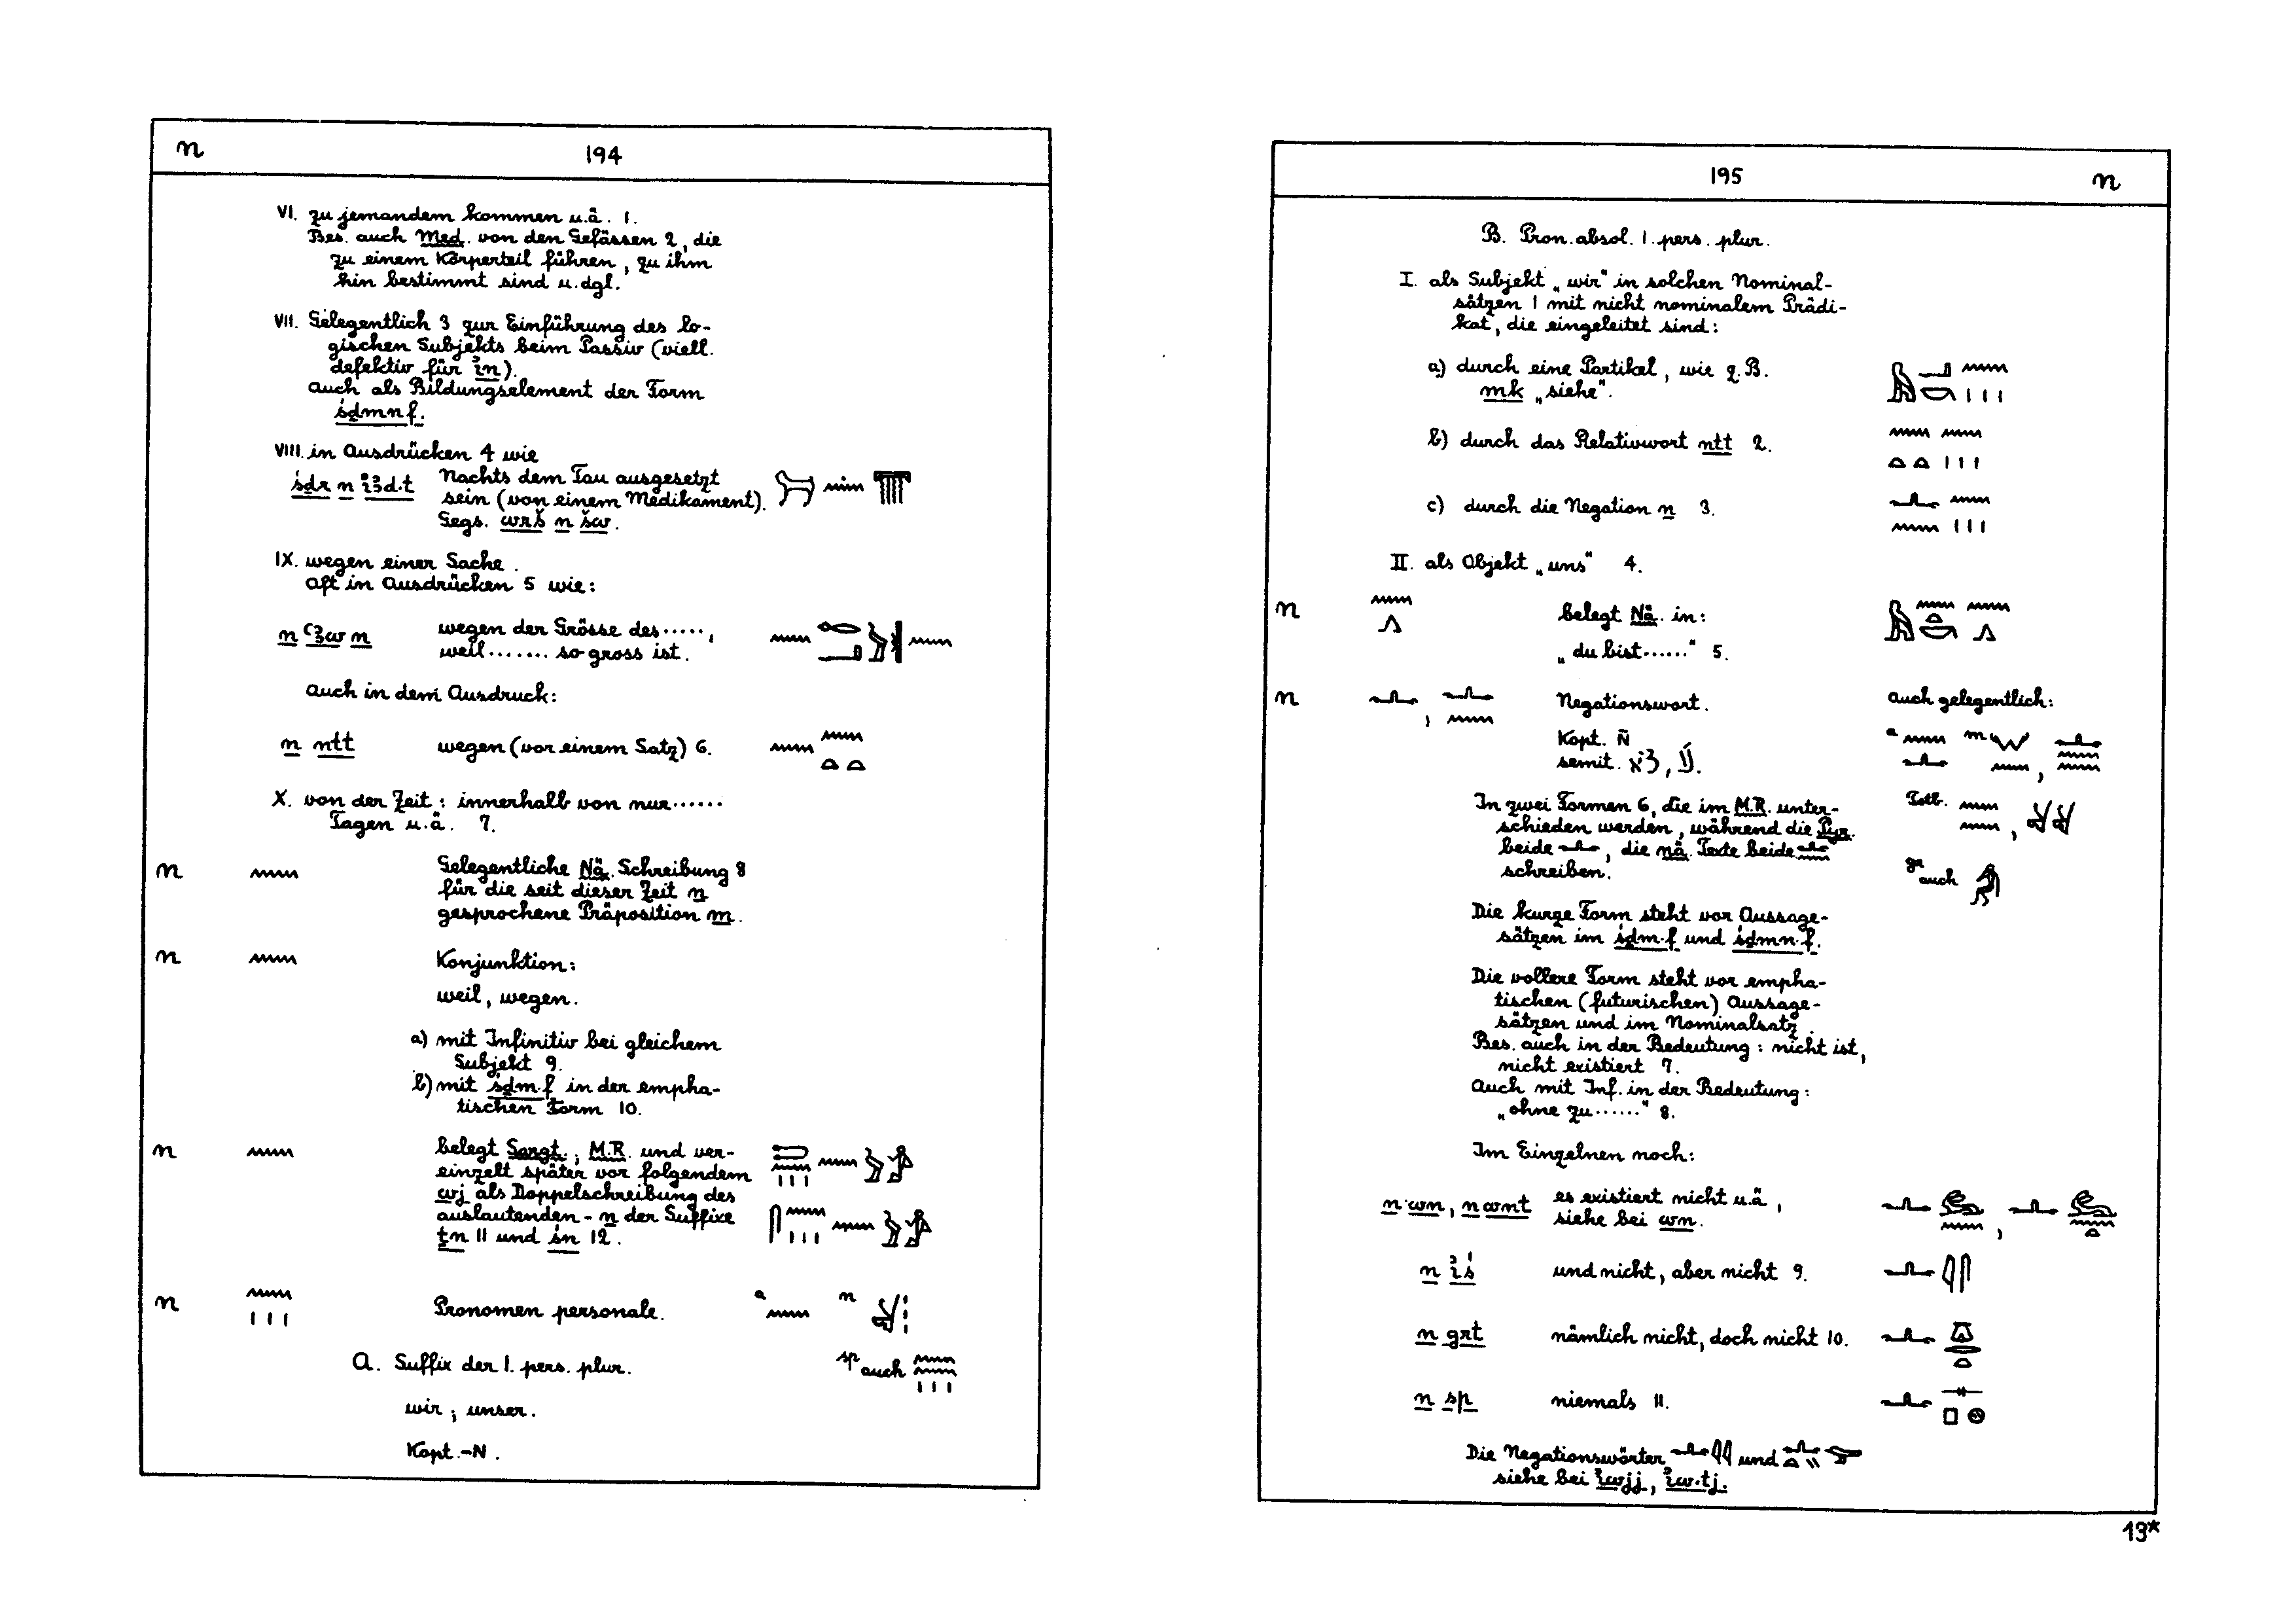 n
194
VI. zu jemandem kommen u.ä. 1.
Bes. auch Med. von den Gefässen 2, die
zu einem Körperteil führen, zu ihm
hin bestimmt sind u. dgl.
VII. Gelegentlich 3 zur Einführung des lo-
gischen Subjekts beim Passiv (viell.
defektiv für ỉn).
Auch als Bildungselement der Form
śḏmnf.
VIII. in Ausdrücken 4 wie
śḏr n ỉꜣd.t Nachts dem Tau ausgesetzt
sein (von einem Medikament).
Gegs. wrš n šw.
IX. wegen einer Sache.
Oft in Ausdrücken 5 wie:
n ꜥꜣw n wegen der Grösse des.....,
weil....... so gross ist.
Auch in dem Ausdruck:
n ntt wegen (vor einem Satz) 6. 𓈖 𓈖𓏏𓏏
X. von der Zeit: innerhalb von nur......
Tagen u.ä. 7.
n 𓈖 Gelegentliche Nä. Schreibung 8
für die seit dieser Zeit n
gesprochene Präposition m.
n 𓈖 Konjunktion:
weil, wegen.
a) mit Infinitiv bei gleichem
Subjekt 9.
b) mit śḏm.f in der empha-
tischen Form 10.
n 𓈖 belegt Sargt., M.R. und ver-
einzelt später vor folgendem
wj als Doppelschreibung des
auslautenden -n der Suffixe
ṯn 11 und śn 12.
n 𓈖𓏥 Pronomen personale. a 𓈖 n
A. Suffix der 1. pers. plur. sp auch 𓈖𓈖𓏥
wir; unser.
Kopt. -N.
195
n
B. Pron. absol. 1. pers. plur.
I. als Subjekt „wir" in solchen Nominal-
sätzen 1 mit nicht nominalem Prädi-
kat, die eingeleitet sind:
a) durch eine Partikel, wie z.B.
mk „siehe".
b) durch das Relativwort ntt 2. 𓈖𓏏𓏏 𓈖𓏥
c) durch die Negation n 3. 𓂜𓈖 𓈖𓏥
II. als Objekt „uns" 4.
n 𓈖𓂻 belegt Nä. in:
„du bist......" 5.
n 𓂜, 𓂜𓈖 Negationswort. Auch gelegentlich:
Kopt. N̄
semit.
In zwei Formen 6, die im M.R. unter-
schieden werden, während die Pyr.
beide 𓂜, die nä. Texte beide 𓂜𓈖
schreiben.
Totb.
gr auch
Die kurze Form steht vor Aussage-
sätzen im śḏm.f und śḏmn.f.
Die vollere Form steht vor empha-
tischen (futurischen) Aussage-
sätzen und im Nominalsatz.
Bes. auch in der Bedeutung: nicht ist,
nicht existiert 7.
Auch mit Inf. in der Bedeutung:
„ohne zu......" 8.
Im Einzelnen noch:
n wn, n wnt es existiert nicht u.ä.,
siehe bei wn.
n ỉś und nicht, aber nicht 9. 𓂜𓇋𓋴
n grt nämlich nicht, doch nicht 10. 𓂜𓎼𓂋𓏏
n sp niemals 11. 𓂜𓊃𓊪𓊗
Die Negationswörter und
siehe bei ỉwjj, ỉw.tj.
13*